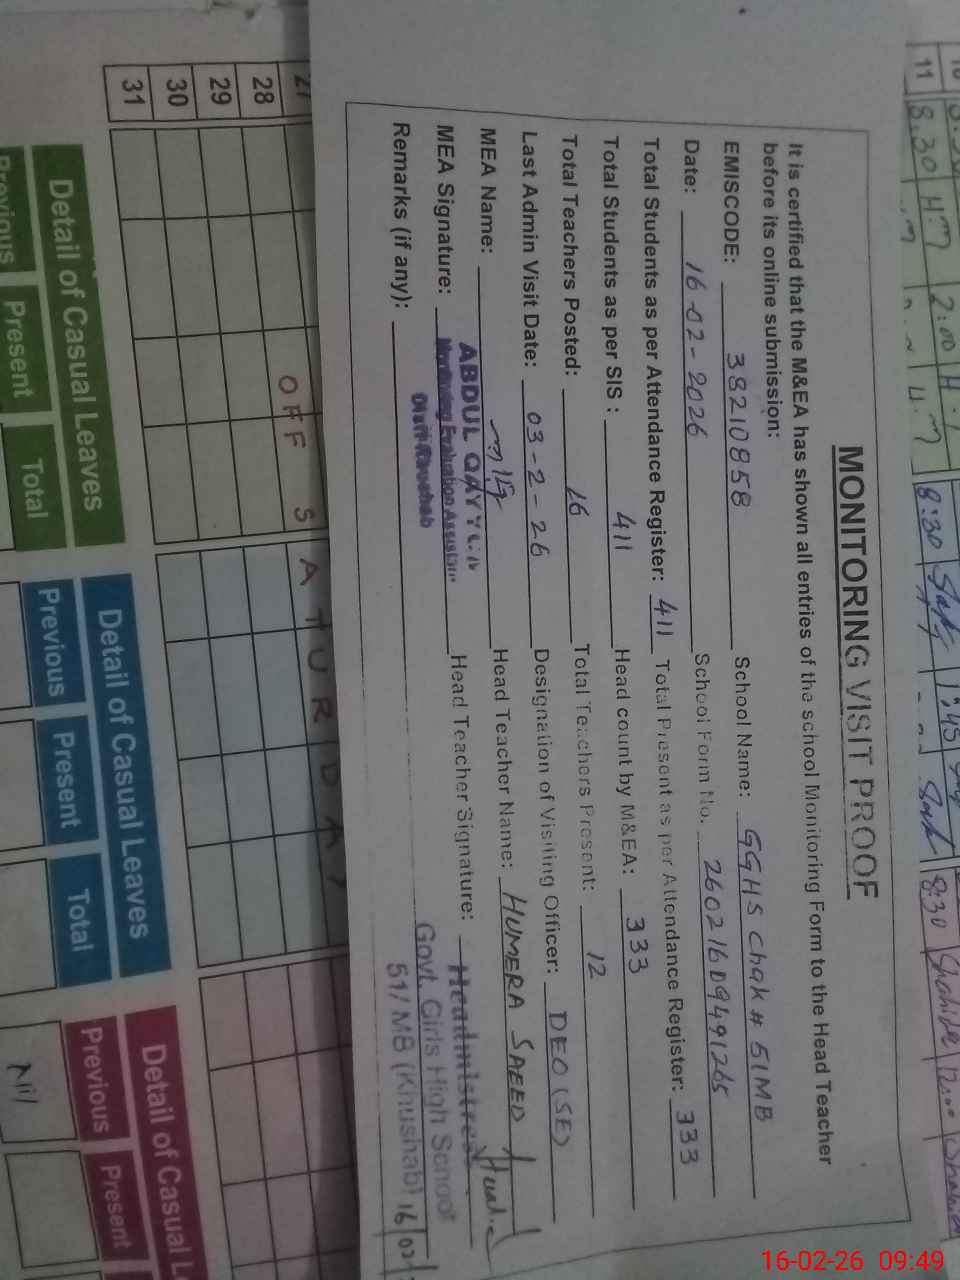 MONITORING VISIT PROOF
It is certified that the M&EA has shown all entries of the school Monitoring Form to the Head Teacher
before its online submission:
EMISCODE: 38210858 School Name: GGHS Chak # 51MB
Date: 16-02-2026 School Form No. 26021609491265
Total Students as per Attendance Register: 411 Total Present as per Attendance Register: 333
Total Students as per SIS : 411 Head count by M&EA: 333
Total Teachers Posted: 16 Total Teachers Present: 12
Last Admin Visit Date: 03-2-26 Designation of Visiting Officer: DEO (SE)
MEA Name: Head Teacher Name: HUMERA SAEED
ABDUL QAYYUM
MEA Signature: Head Teacher Signature:
Monitoring Evaluation Assistant
Distt. Khushab
Headmistress
Govt. Girls High School
51/MB (Khushab)
16/02/
Remarks (if any):
27
28
29
30
31
OFF SATURDAY
Detail of Casual Leaves
Previous Present Total
Detail of Casual Leaves
Previous Present Total
Detail of Casual L
Previous Present
Nil
10
11 8:30 H.M 2:00 8:30 1:45 8:30 12:00
16-02-26 09:49